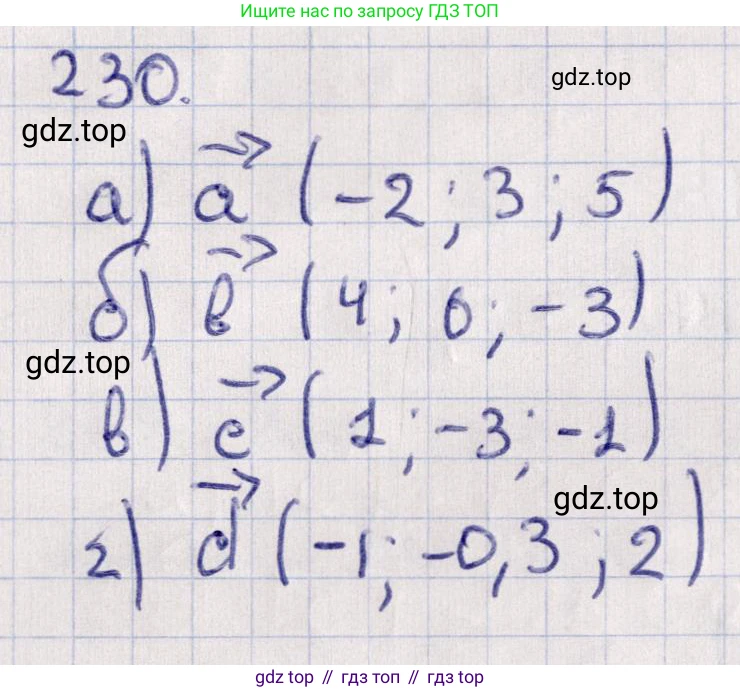 Ищите нас по запросу ГДЗ ТОП
230.
gdz.top
gdz.top
а) a⃗ (-2; 3; 5)
б) b⃗ (4; 0; -3)
gdz.top
в) c⃗ (1; -3; -1)
gdz.top
г) d⃗ (-1; -0,3; 2)
gdz top // гдз топ // gdz top